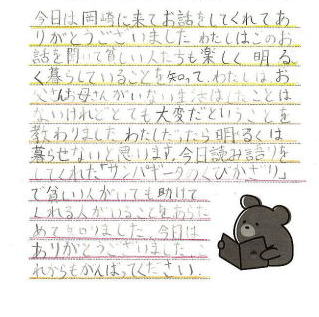 今日は岡崎に来てお話をしてくれてあ
りがとうございました わたしはこのお
話を聞いて貧しい人たちも楽しく 明る
く暮らしていることを知って わたしは お
父さんお母さんがいない ことは
ないけれど とても 大変だということを
教わりました わたしだったら明るくは
暮らせないと思います。今日読み語りを
してくれた「サンパギータのくびかざり」
で貧しい人がいても助けて
くれる人がいることをあらた
めて知りました 今日は
ありがとうございました こ
れからもがんばってください.